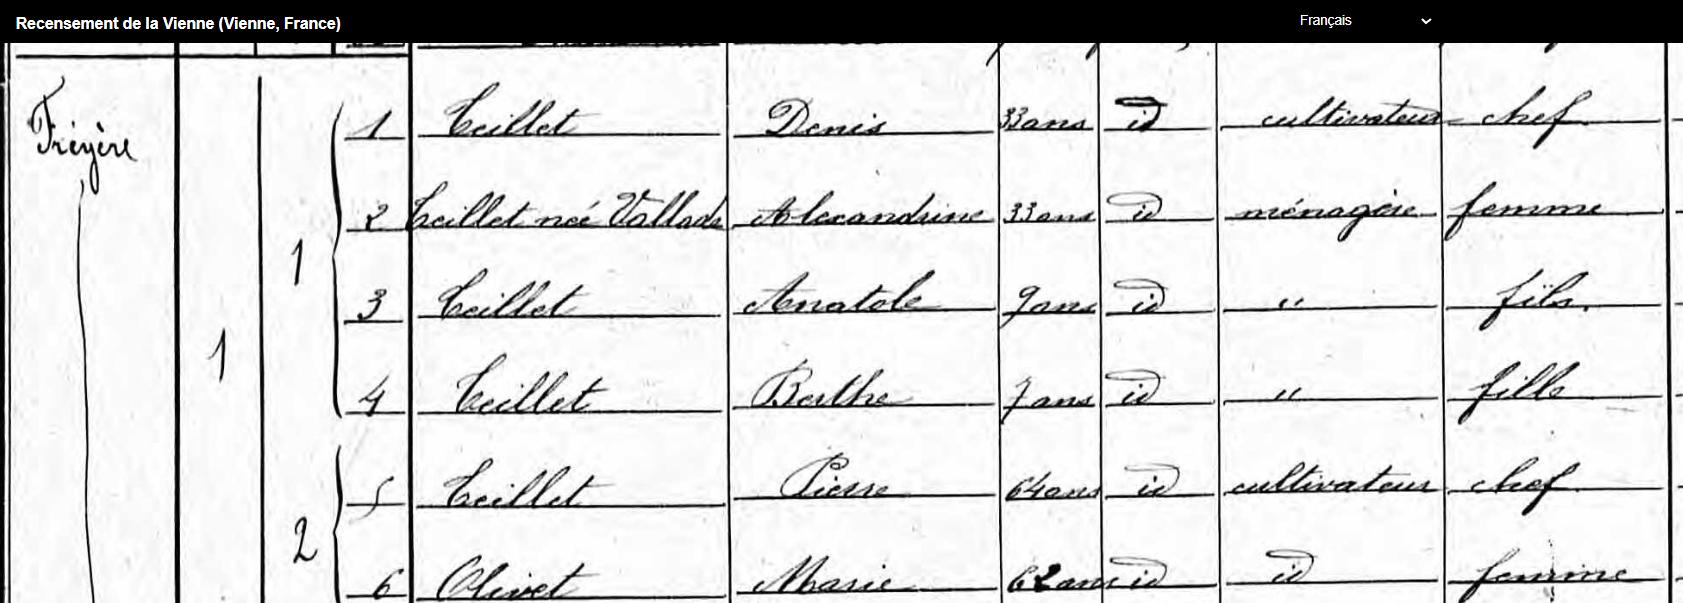 Recensement de la Vienne (Vienne, France) Français
1 Teillet Denis 33 ans id cultivateur chef
Frégère
2 Teillet née Vallade Alexandrine 33 ans id ménagère femme
1
3 Teillet Anatole 9 ans id " fils.
1
4 Teillet Berthe 7 ans id " fille
5 Teillet Pierre 64 ans id cultivateur chef
2
6 Olivet Marie 62 ans id id femme